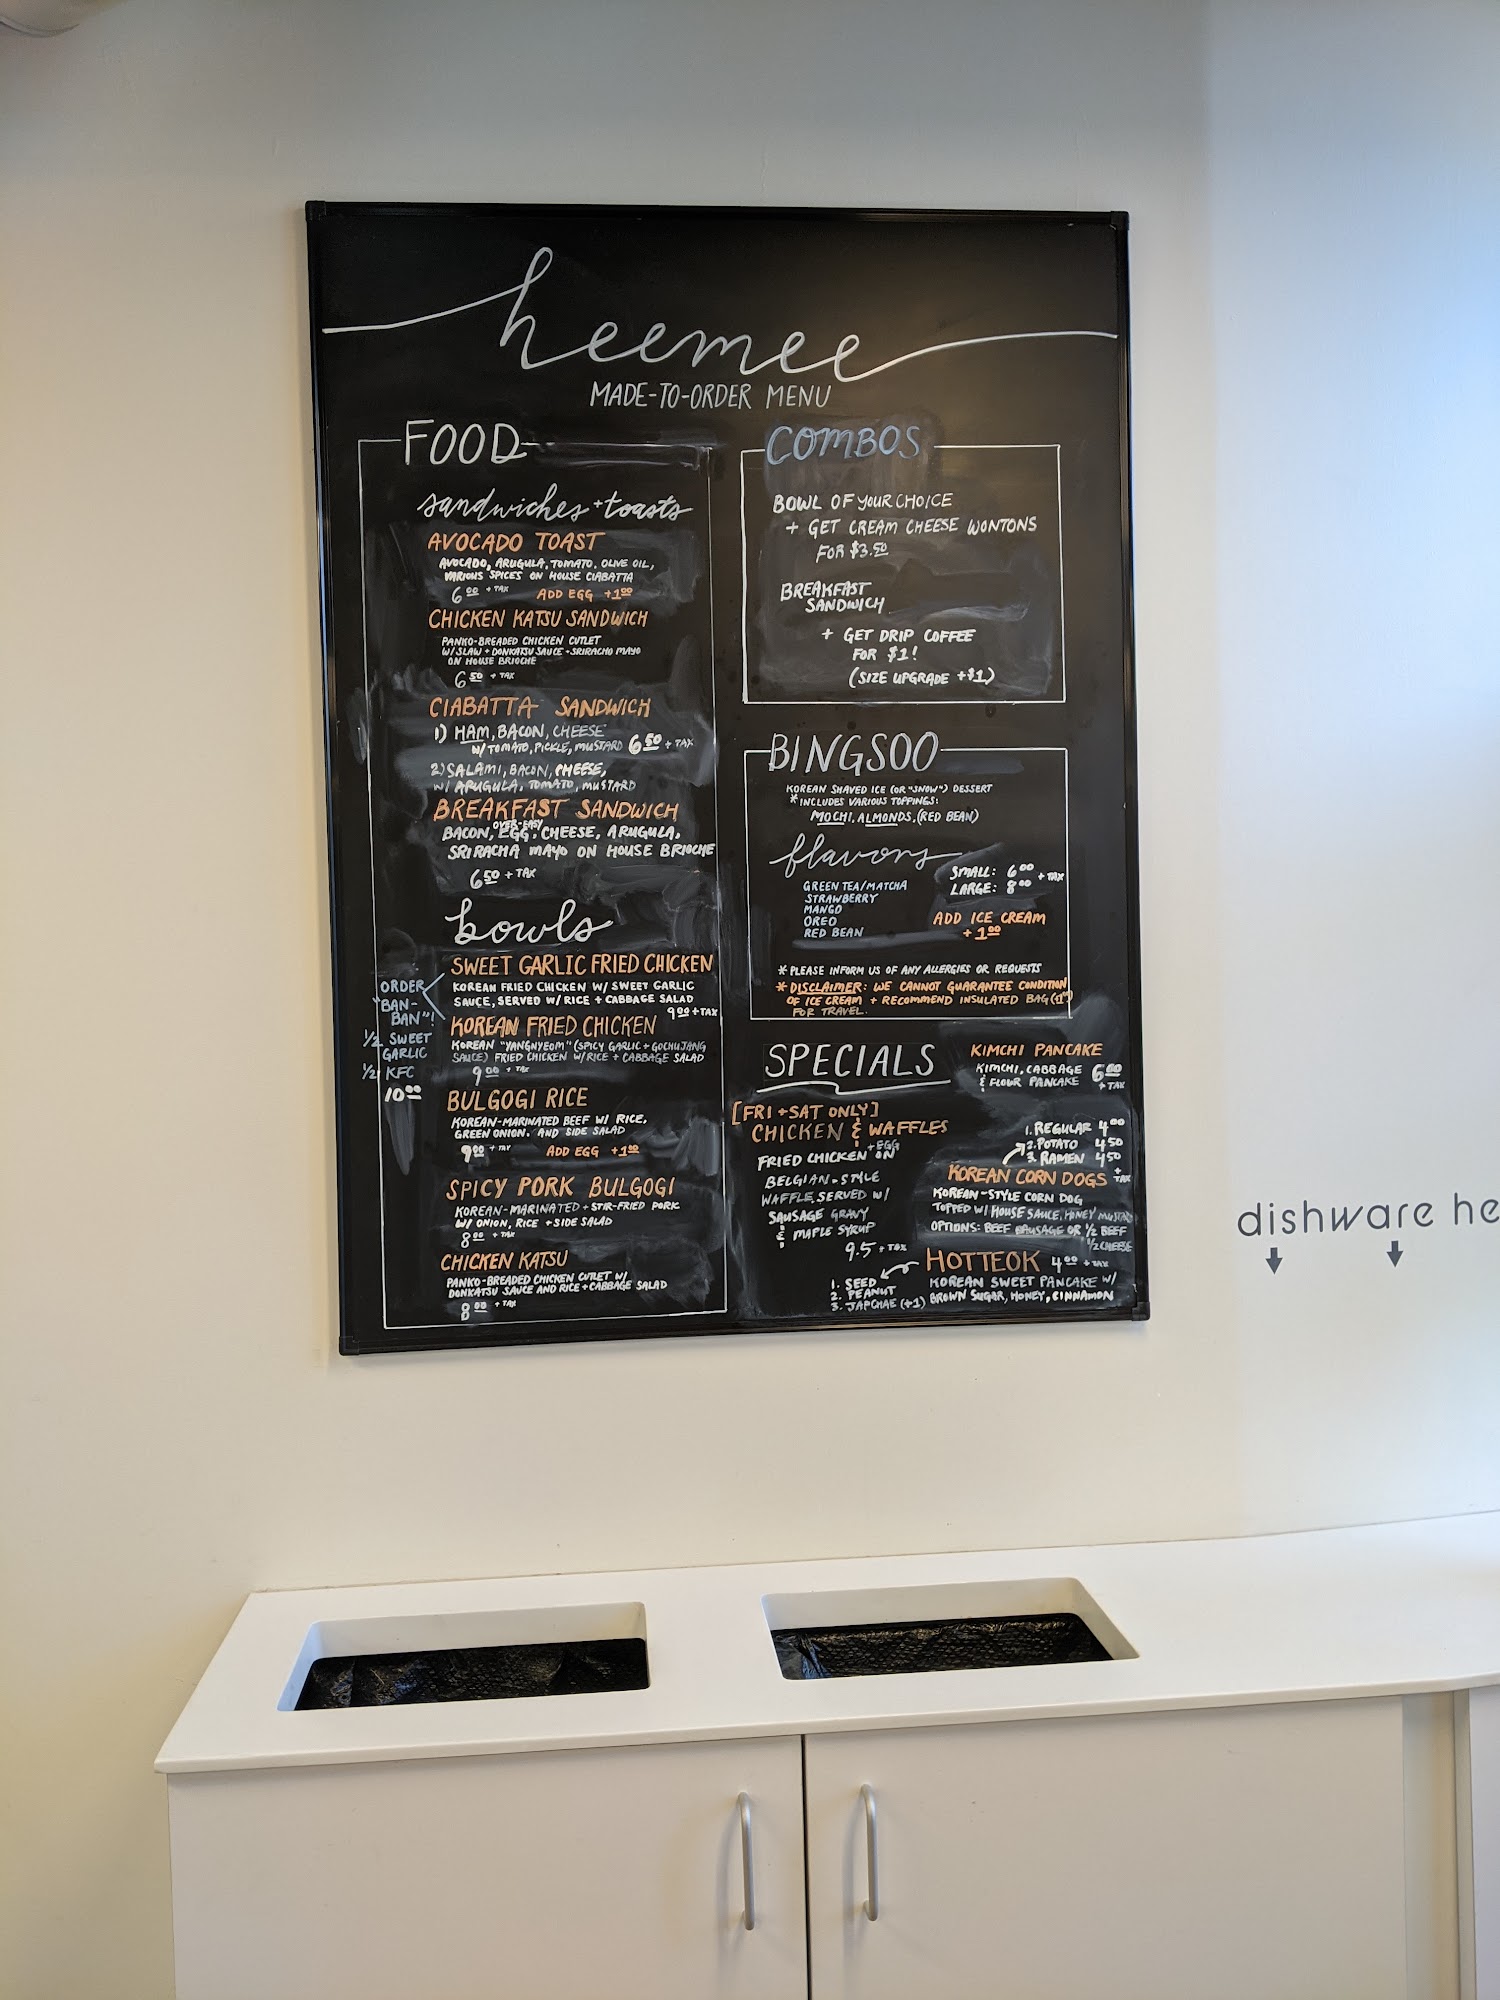 heemee
MADE-TO-ORDER MENU
FOOD
sandwiches + toasts
AVOCADO TOAST
AVOCADO, ARUGULA, TOMATO, OLIVE OIL,
VARIOUS SPICES ON HOUSE CIABATTA
6.00 + TAX ADD EGG +1.00
CHICKEN KATSU SANDWICH
PANKO-BREADED CHICKEN CUTLET
W/ SLAW + DONKATSU SAUCE + SRIRACHO MAYO
ON HOUSE BRIOCHE
6.50 + TAX
CIABATTA SANDWICH
1) HAM, BACON, CHEESE
W/ TOMATO, PICKLE, MUSTARD 6.50 + TAX
2) SALAMI, BACON, CHEESE,
W/ ARUGULA, TOMATO, MUSTARD
BREAKFAST SANDWICH
OVER-EASY
BACON, EGG, CHEESE, ARUGULA,
SRIRACHA MAYO ON HOUSE BRIOCHE
6.50 + TAX
bowls
SWEET GARLIC FRIED CHICKEN
KOREAN FRIED CHICKEN W/ SWEET GARLIC
SAUCE, SERVED W/ RICE + CABBAGE SALAD
9.00 + TAX
KOREAN FRIED CHICKEN
KOREAN "YANGNYEOM" (SPICY GARLIC + GOCHUJANG
SAUCE) FRIED CHICKEN W/ RICE + CABBAGE SALAD
9.00 + TAX
ORDER
"BAN-
BAN"!
1/2 SWEET
GARLIC
1/2 KFC
10.00
BULGOGI RICE
KOREAN-MARINATED BEEF W/ RICE,
GREEN ONION, AND SIDE SALAD
9.00 + TAX ADD EGG +1.00
SPICY PORK BULGOGI
KOREAN-MARINATED + STIR-FRIED PORK
W/ ONION, RICE + SIDE SALAD
8.00 + TAX
CHICKEN KATSU
PANKO-BREADED CHICKEN CUTLET W/
DONKATSU SAUCE AND RICE + CABBAGE SALAD
8.00 + TAX
COMBOS
BOWL OF YOUR CHOICE
+ GET CREAM CHEESE WONTONS
FOR $3.50
BREAKFAST
SANDWICH
+ GET DRIP COFFEE
FOR $1!
(SIZE UPGRADE +$1)
BINGSOO
KOREAN SHAVED ICE (OR "SNOW") DESSERT
*INCLUDES VARIOUS TOPPINGS:
MOCHI, ALMONDS, (RED BEAN)
flavors
GREEN TEA/MATCHA
STRAWBERRY
MANGO
OREO
RED BEAN
SMALL: 6.00 + TAX
LARGE: 8.00
ADD ICE CREAM
+ 1.00
* PLEASE INFORM US OF ANY ALLERGIES OR REQUESTS
* DISCLAIMER: WE CANNOT GUARANTEE CONDITION
OF ICE CREAM + RECOMMEND INSULATED BAG
FOR TRAVEL.
SPECIALS
KIMCHI PANCAKE
KIMCHI, CABBAGE
& FLOUR PANCAKE 6.00 + TAX
[FRI + SAT ONLY]
CHICKEN & WAFFLES
FRIED CHICKEN + EGG ON
BELGIAN-STYLE
WAFFLE, SERVED W/
SAUSAGE GRAVY
& MAPLE SYRUP
9.5 + TAX
1. REGULAR 4.00
2. POTATO 4.50
3. RAMEN 4.50
+ TAX
KOREAN CORN DOGS
KOREAN-STYLE CORN DOG
TOPPED W/ HOUSE SAUCE, HONEY MUSTARD
OPTIONS: BEEF SAUSAGE OR 1/2 BEEF
1/2 CHEESE
HOTTEOK 4.00 + TAX
KOREAN SWEET PANCAKE W/
BROWN SUGAR, HONEY, CINNAMON
1. SEED
2. PEANUT
3. JAPCHAE (+1)
dishware he